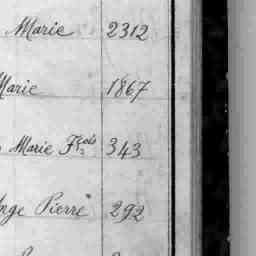 Marie 2312
Marie 1867
Marie Fçois 343
Ange Pierre 292